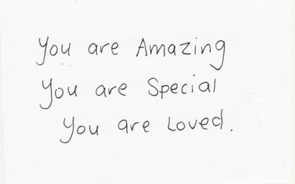 You are Amazing
You are Special
You are Loved.